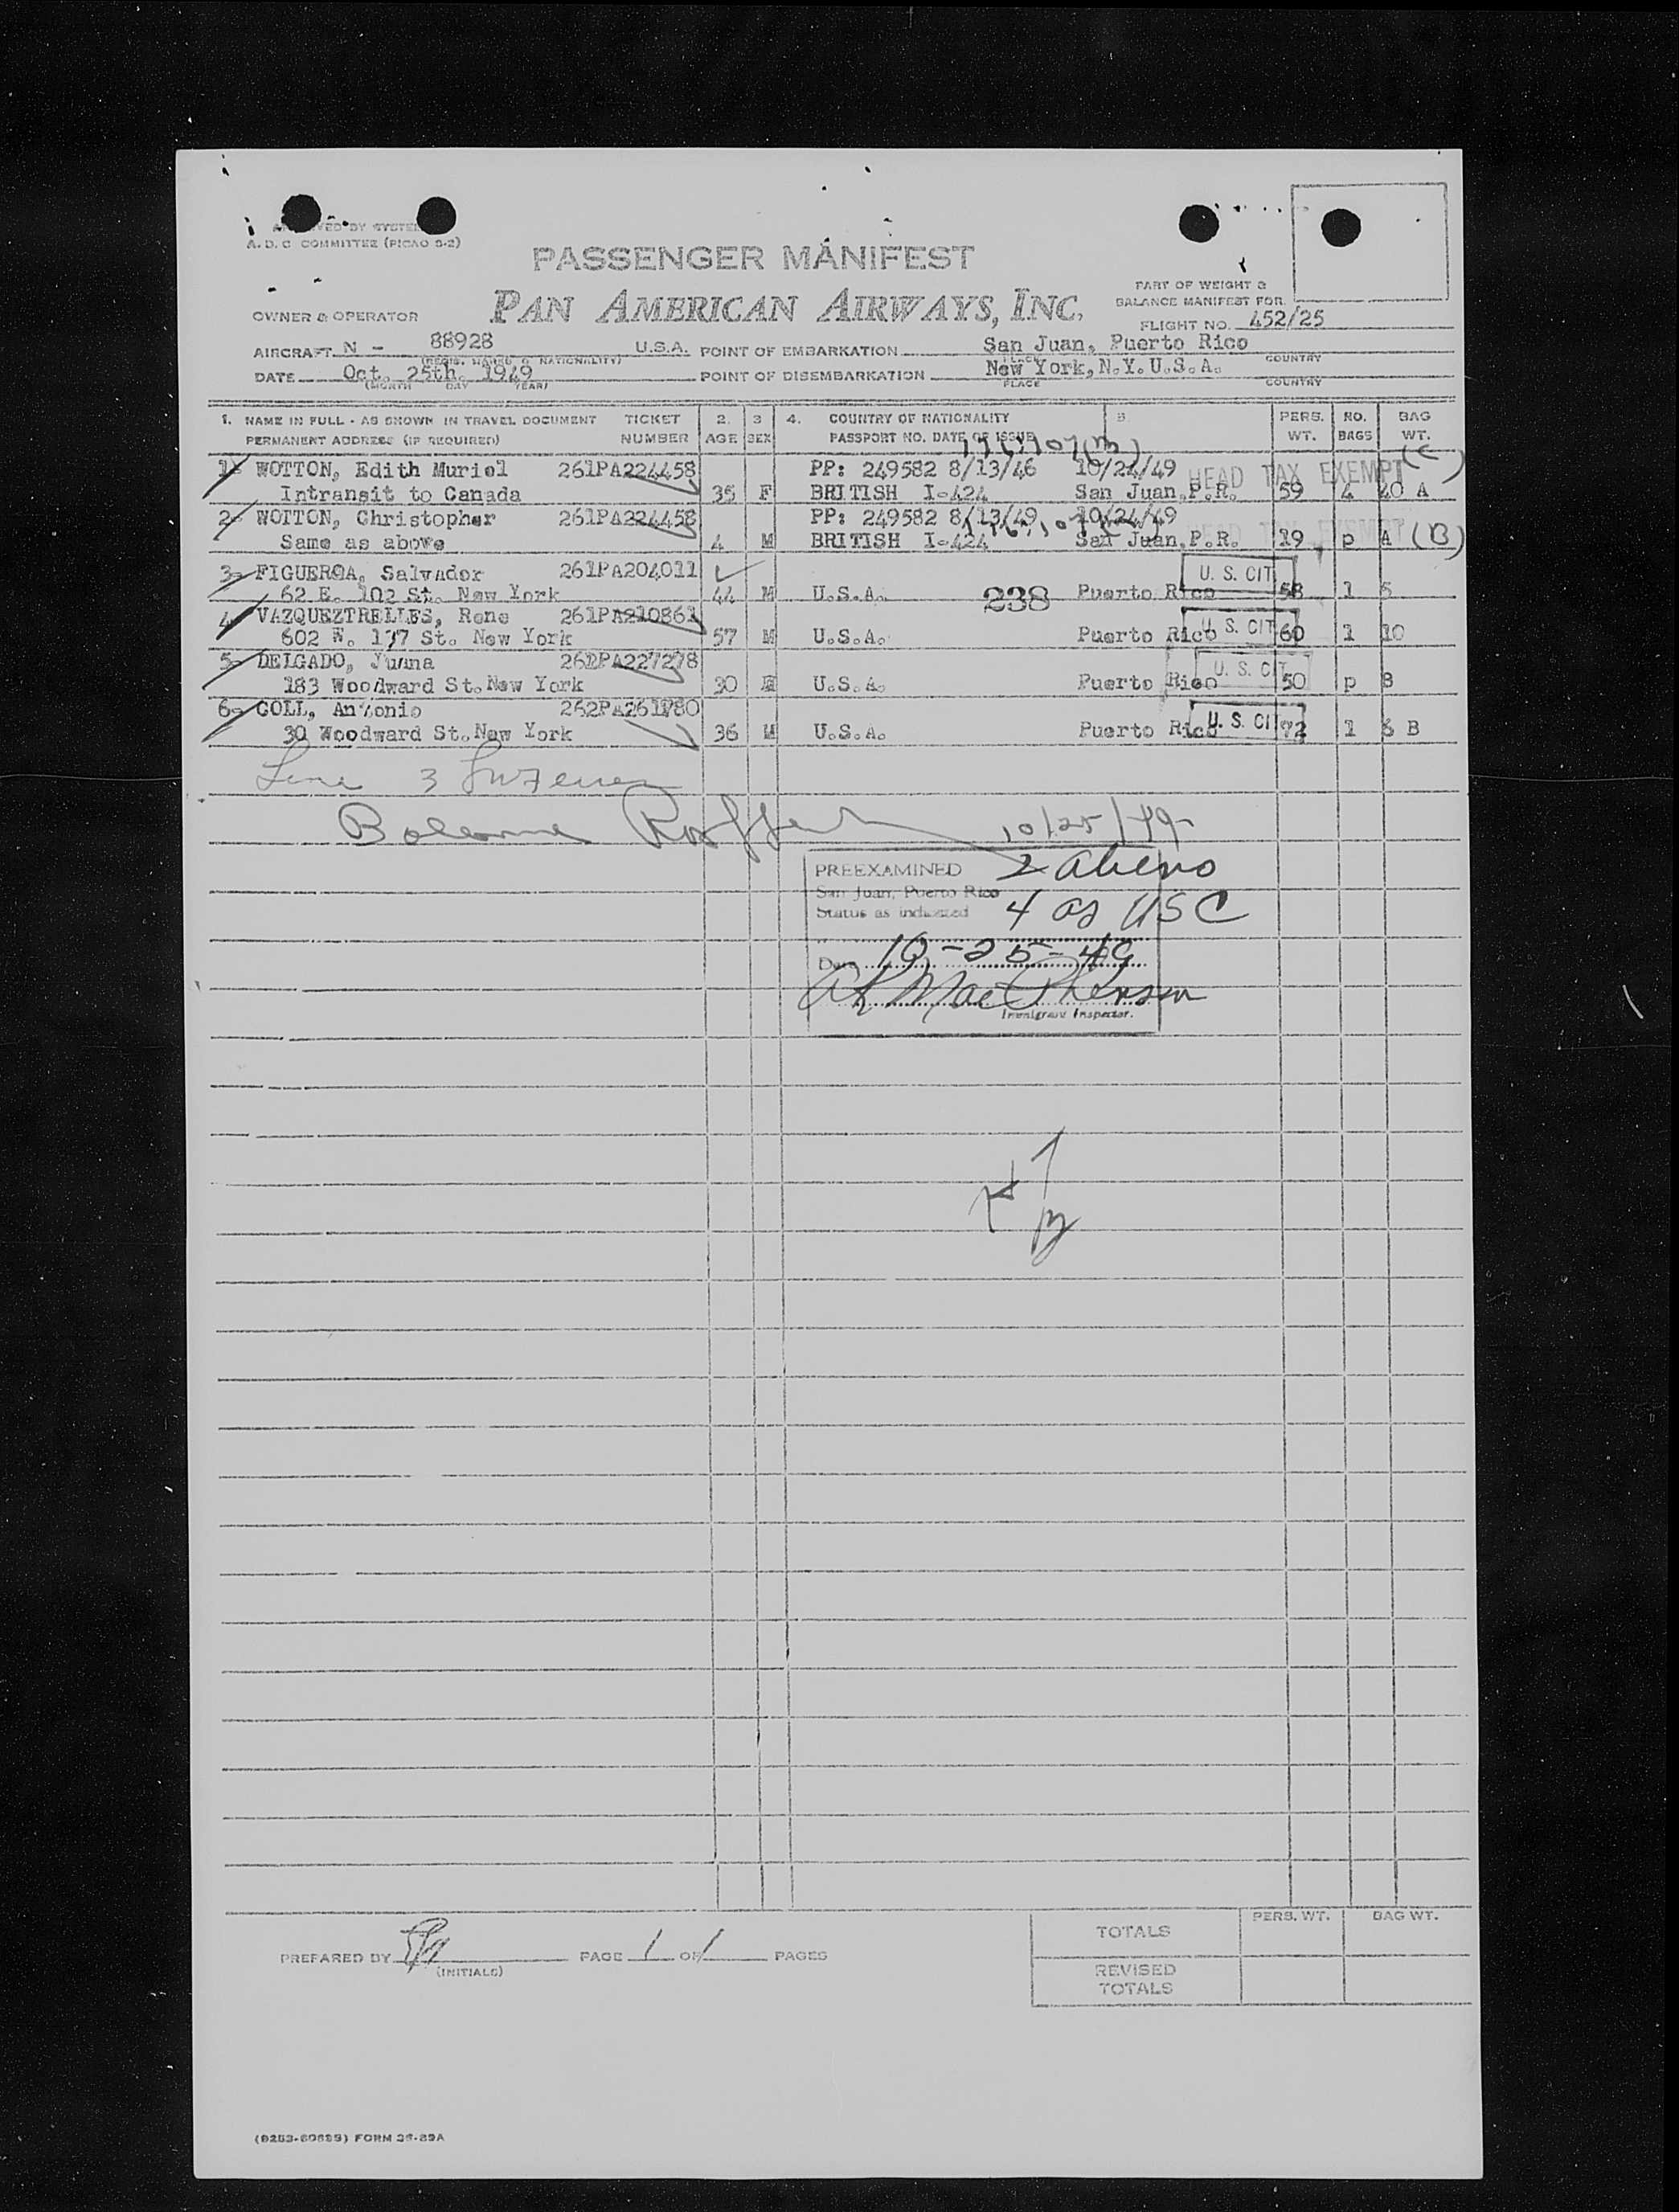 A. D. C COMMITTEE (PICAO S-2)
PASSENGER MANIFEST
PAN AMERICAN AIRWAYS, INC.
OWNER & OPERATOR
PART OF WEIGHT &
BALANCE MANIFEST FOR
FLIGHT NO. 452/25
AIRCRAFT N - 88928 U.S.A. POINT OF EMBARKATION San Juan, Puerto Rico
(REGIS. MARKS & NATIONALITY) PLACE COUNTRY
DATE Oct. 25th. 1949 POINT OF DISEMBARKATION New York, N.Y. U.S.A.
(MONTH DAY YEAR) PLACE COUNTRY
1. NAME IN FULL - AS SHOWN IN TRAVEL DOCUMENT TICKET 2. 3 4. COUNTRY OF NATIONALITY 5. PERS. NO. BAG
PERMANENT ADDRESS (IF REQUIRED) NUMBER AGE SEX PASSPORT NO. DATE OF ISSUE WT. BAGS WT.
1- WOTTON, Edith Muriel 261PA224458 PP: 249582 8/13/46 10/24/49 HEAD TAX EXEMPT (C)
Intransit to Canada 35 F BRITISH I-424 San Juan, P.R. 59 4 40 A
2- WOTTON, Christopher 261PA224458 PP: 249582 8/13/49 10/24/49 HEAD TAX EXEMPT
Same as above 4 M BRITISH I-424 San Juan, P.R. 19 p A (B)
3- FIGUEROA, Salvador 261PA204011 U. S. CIT
62 E. 102 St. New York 44 M U.S.A. 238 Puerto Rico 58 1 5
4- VAZQUEZTRELLES, Rene 261PA210861 U. S. CIT
602 W. 137 St. New York 57 M U.S.A. Puerto Rico 60 1 10
5- DELGADO, Juana 261PA227278 U. S. CIT
183 Woodward St. New York 30 U.S.A. Puerto Rico 50 p 8
6- COLL, Antonio 262PA261780 U. S. CIT
30 Woodward St. New York 36 M U.S.A. Puerto Rico 72 1 6 B
Line 3
10/25/49
PREEXAMINED 2 aliens
San Juan, Puerto Rico
Status as indicated 4 as USC
Date 10-25-49
MacPherson
Immigrant Inspector.
PREPARED BY PAGE 1 OF 1 PAGES
(INITIALS)
PERS. WT. BAG WT.
TOTALS
REVISED
TOTALS